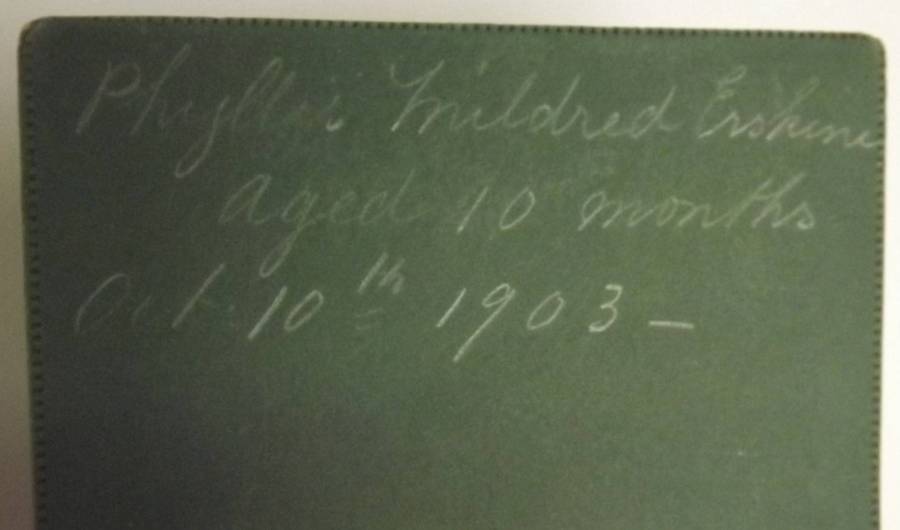 Phyllis Mildred Erskine
aged 10 months
Oct. 10th 1903 –